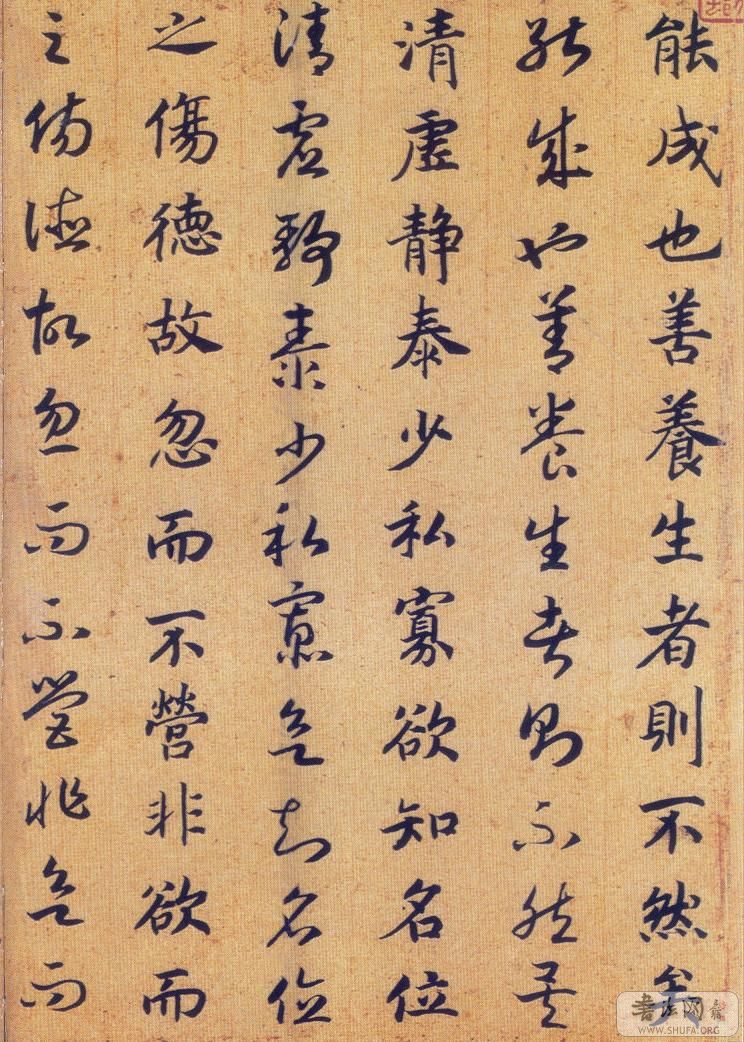 能成也善養生者則不然矣
能成也善養生者則不然矣
清虛靜泰少私寡欲知名位
清虛靜泰少私寡欲知名位
之傷德故忽而不營非欲而
之傷德故忽而不營非欲而
書法网
WWW.SHUFA.ORG